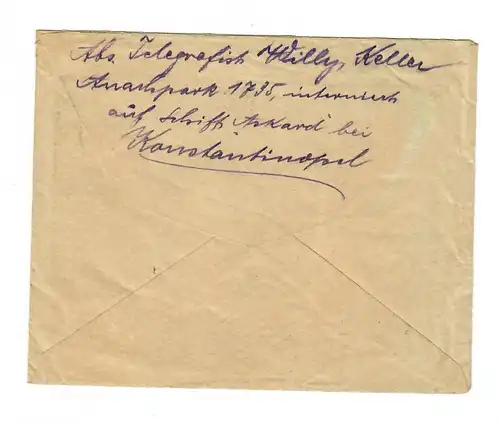 Abs. Telegrafist Willy Keller
1735, interniert
auf Schiff "Askard" bei
Konstantinopel